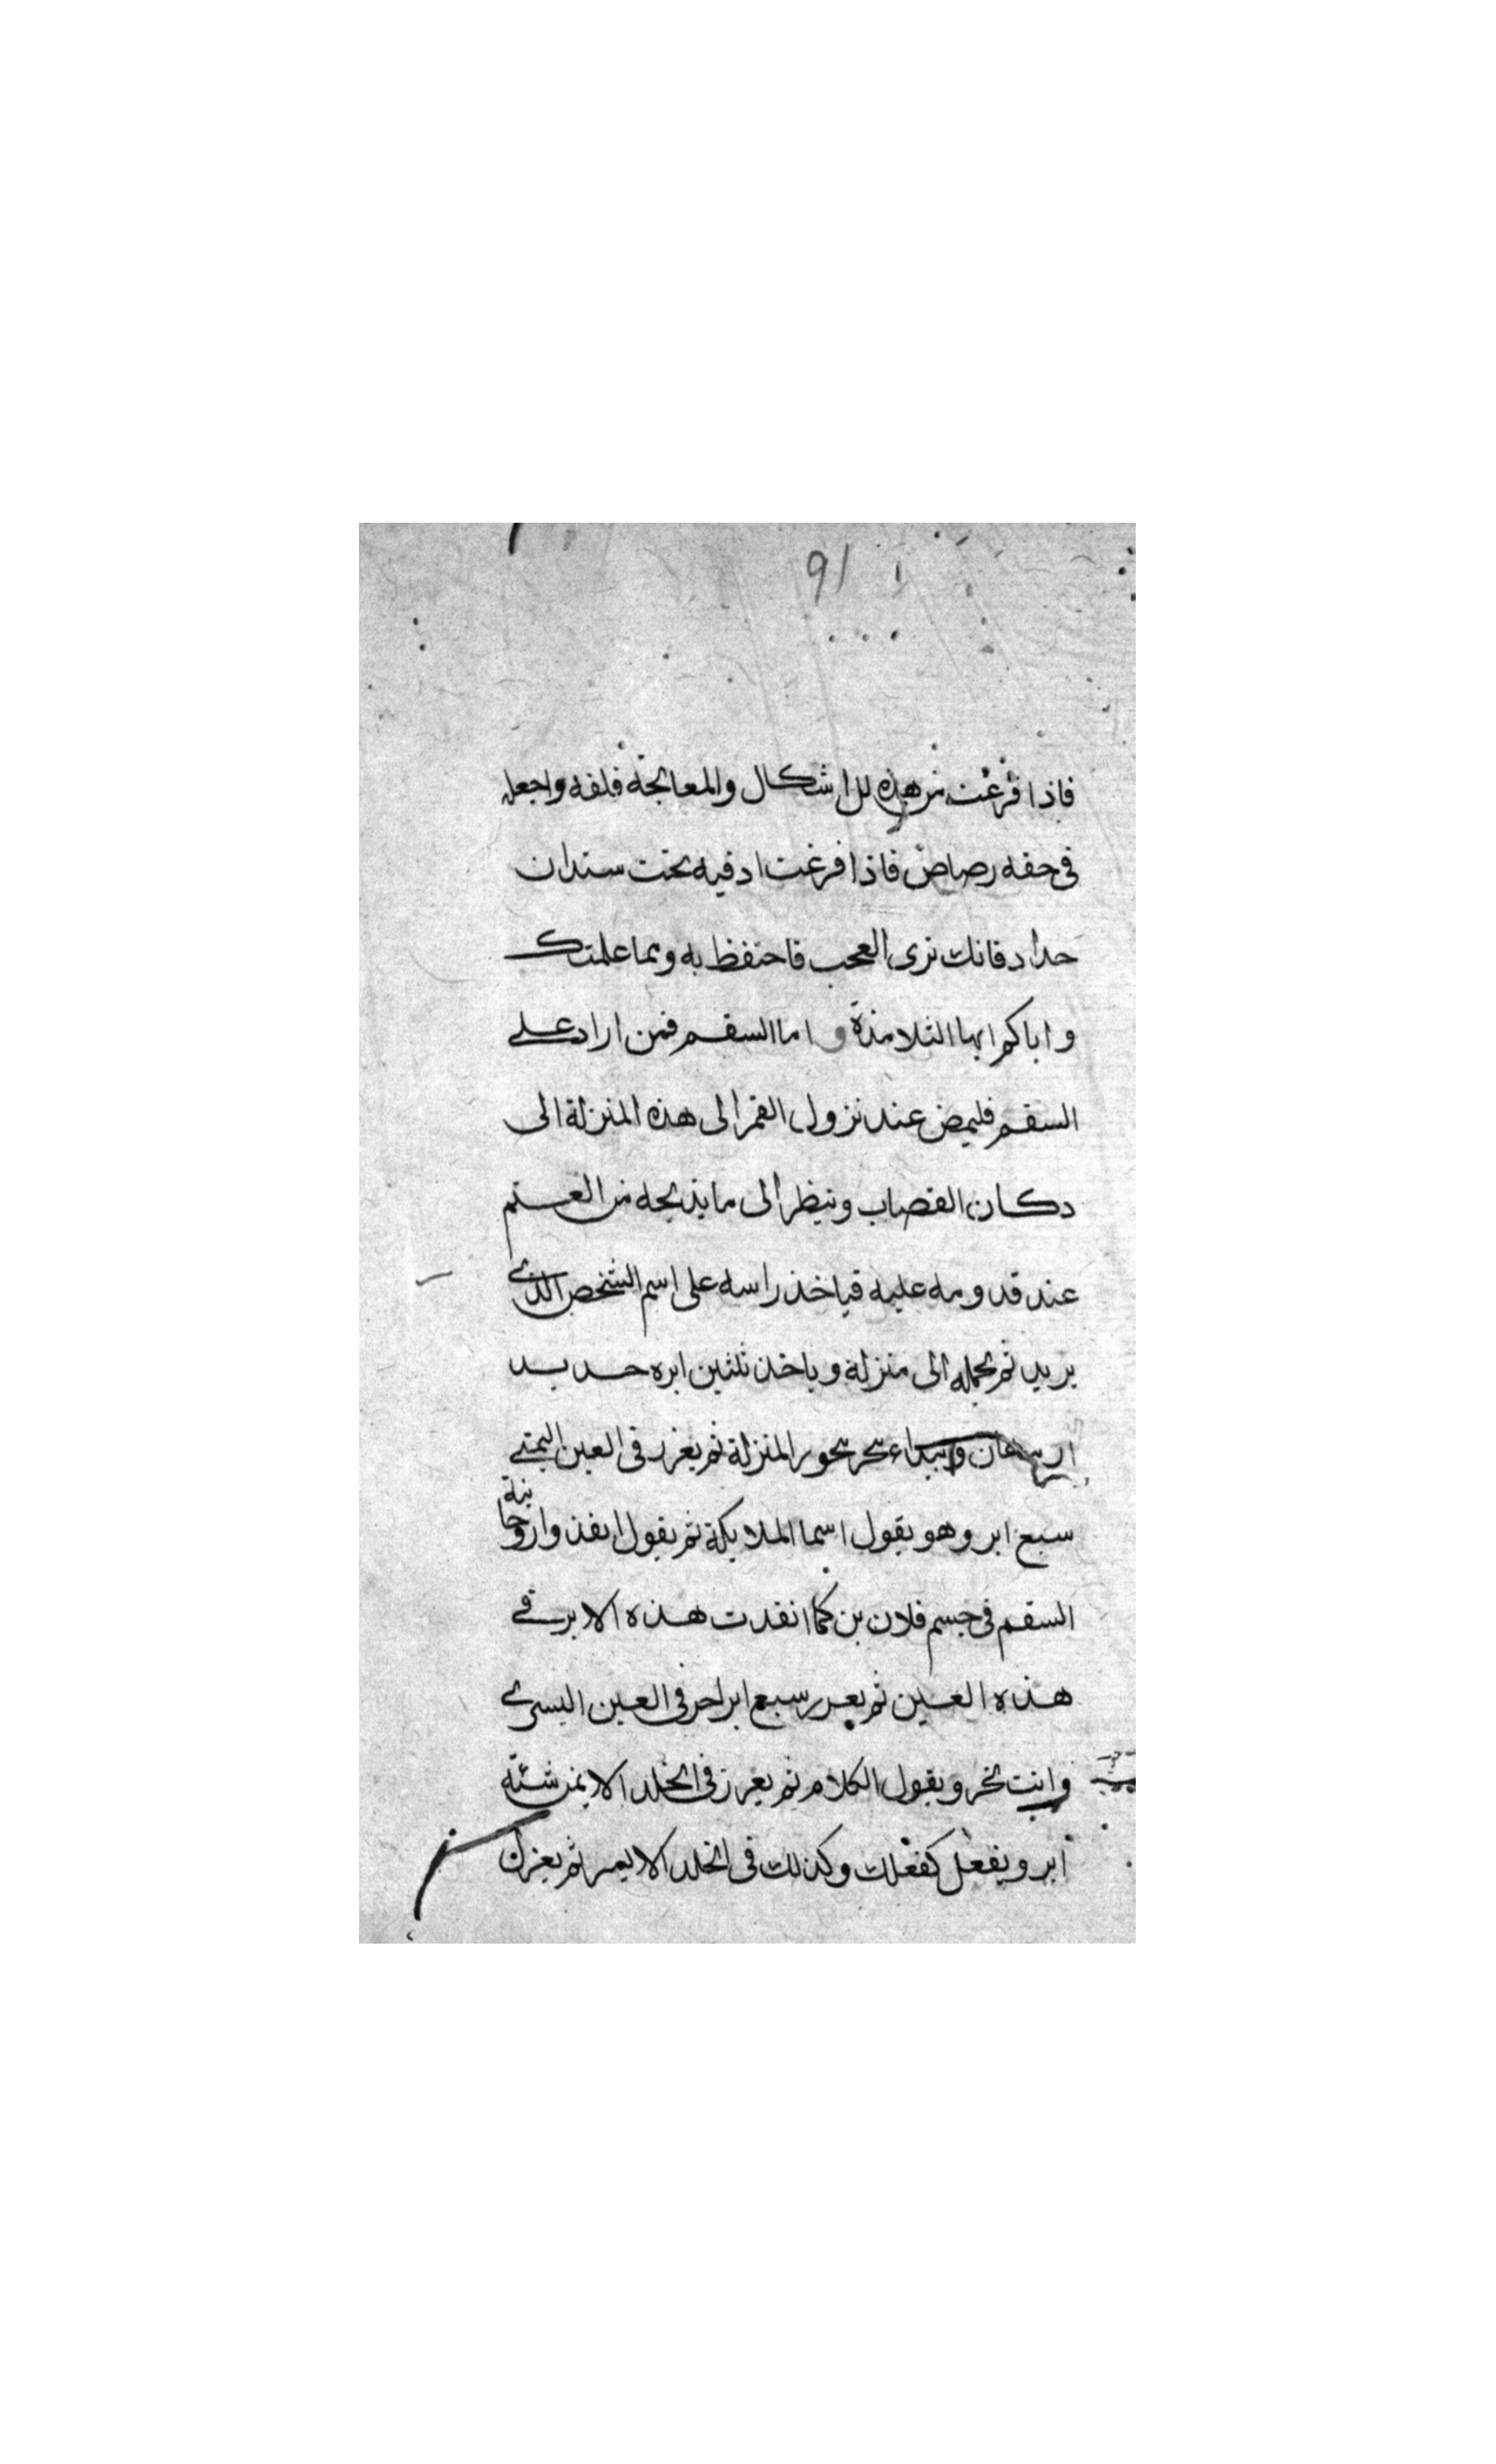 91
فاذا فرغت من هذه الاشكال والمعالجة فلفه واجعله
فى حقه رصاص فاذا فرغت ادفيه تحت سندان
حداد فانك ترى العجب فاحتفظ به وبما علمتك
واياكم ايها التلامذة واما السقم فمن اراد على
السقم فليمض عند نزول القمر الى هذه المنزلة الى
دكان القصاب وينظر الى ما يذبحه من الغنم
عند قدومه عليه فياخذ راسه على اسم الشخص الذى
يريد ثم يحمله الى منزلة وياخذ ثلثين ابره حديد
المنزلة ثم يغرز فى العين اليمنى
سبع ابر وهو يقول اسما الملايكة ثم يقول انفذوا روحانية
السقم فى جسم فلان بن كما انفدت هذه الابر فى
هذه العين ثم يعرر سبع ابر اخر فى العين اليسرى
وانت تبخر ويقول الكلام ثم يغرز فى الخلد الايمن ستة
ابر ويفعل كفعلك وكذلك فى الخلد الايسر ثم يغرز